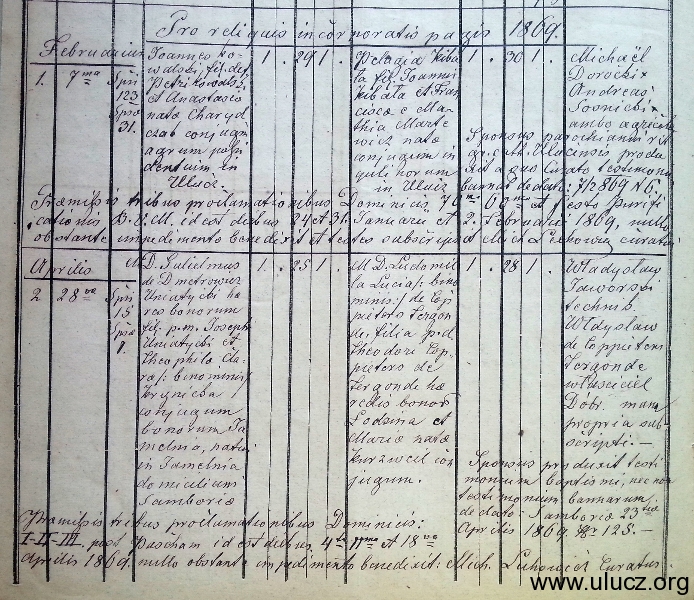 Pro reliquis incorporatis pagis 1869.
Februarius
1. 7ma
Spsi
123
Spsa
31.
Joannes Ko-
walski fil. def.
Petri Kowalski
et Anastasiæ
natæ Charyd
czak conjugum
agrum possi
dentium in
Ulucz.
1 . 29 1 .
Pelagia Kiba
la fil. Joannis
Kibała et Fran
ciscæ e Ma
thia Marte
wicz natæ
conjugum in
quilinorum
in Ulucz
1 . 30 1 .
Michaël
Dorocki x
Andreas
Sosnicki x
ambo agricolæ
Sponsus parochianus rit.
gr. cath. Ulucensis produ
xit a suo Curato testimoni
bannor. de dato: 7/2 869 N 6.
Præmissis tribus proclamationibus Dominicis et festo Purifi
cationis B. V. M. id est diebus 24 et 31. Januarii et 2. Februarii 1869, nullo
obstante impedimento benedixit et testes subscripsit Mich. Lechowicz curatus
Aprilis
2 28va
Spsi
15
Spsa
1.
M. D. Gulielmus
de Dmetrowicz
Uniatycki hæ
res bonorum
fil. p.m. Josephi
Uniatycki et
Theophilæ Cla-
ræ /: binominis /
Krynicka /
conjugum
bonorum Ja
melnia, natus
in Jamelnia
domicilium
Samboriæ
1 . 25 1 .
M. D. Ludomil
la Lucia /: bino
minis :/ de Cop
pieters Tergon
de, filia p.d.
Theodori Cop
pieters de
Tergonde hæ
redis bonor.
Lodzina et
Mariæ natæ
Kurzweil con
jugum.
1 . 28 1 .
Władysław
Jaworski
technik
Władysław
de Coppieters
Tergonde
właściciel
Dóbr. manu
propria sub-
scripti. —
Sponsus produxit testi
monium baptismi, nec non
testimonium bannorum
de dato: Samboriæ 23tia
Aprilis 1869. Nr 125. —
Præmissis tribus proclamationibus Dominicis:
I-II-III. post Pascham id est diebus 4ta 11ma et 18va
Aprilis 1869. nullo obstante impedimento benedixit: Mich. Lechowicz Curatus.
www.ulucz.org